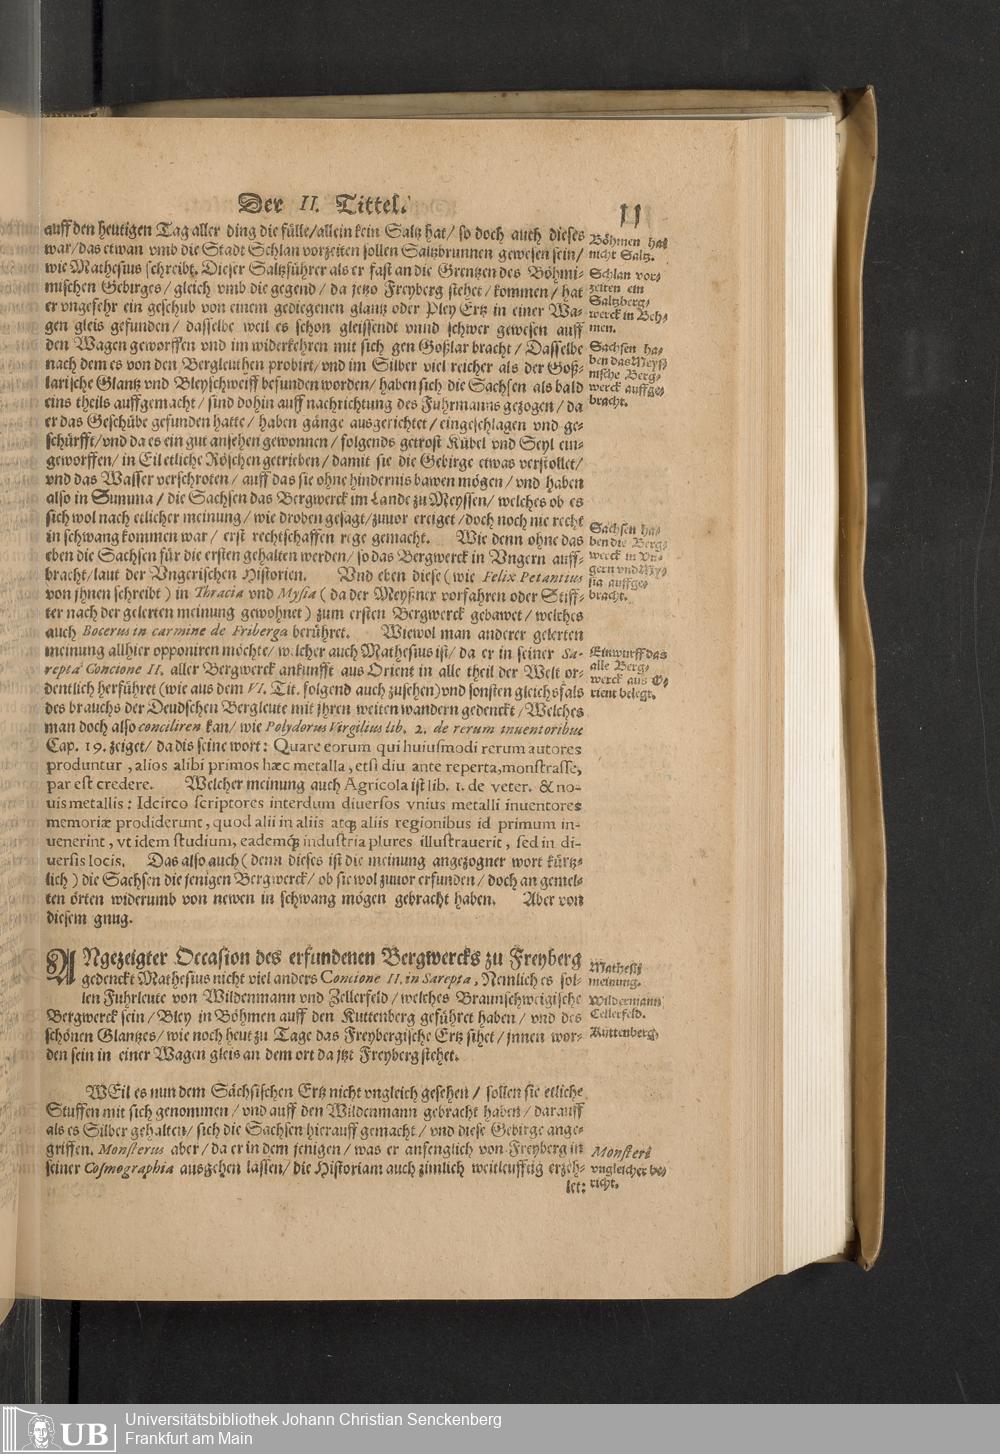 Der II. Tittel.
11
auff den heutigen Tag aller ding die fülle/allein kein Saltz hat/ so doch auch dieses
war/das etwan vmb die Stadt Schlan vorzeiten sollen Saltzbrunnen gewesen sein/
wie Mathesius schreibt. Dieser Saltzführer als er fast an die Grentzen des Böhmi-
mischen Gebirges/ gleich vmb die gegend/ da jetzo Freyberg stehet/ kommen/ hat
er vngefehr ein geschub von einem gediegenen glantz oder Pley Ertz in einer Wa-
gen gleis gefunden/ dasselbe weil es schon gleissendt vnnd schwer gewesen auff
den Wagen geworffen vnd im widerkehren mit sich gen Goßlar bracht/ Dasselbe
nach dem es von den Bergleuthen probirt/ vnd im Silber viel reicher als der Goß-
larische Glantz vnd Bleyschweiff befunden worden/ haben sich die Sachsen als bald
eins theils auffgemacht/ sind dohin auff nachrichtung des Fuhrmanns gezogen/ da
er das Geschübe gefunden hatte/ haben gänge ausgerichtet/ eingeschlagen vnd ge-
schürfft/ vnd da es ein gut ansehen gewonnen/ folgends getrost Kübel vnd Seyl ein-
geworffen/ in Eil etliche Röschen getrieben/ damit sie die Gebirge etwas verstollet/
vnd das Wasser verschroten/ auff das sie ohne hindernis bawen mögen/ vnd haben
also in Summa/ die Sachsen das Bergwerck im Lande zu Meyssen/ welches ob es
sich wol nach etlicher meinung/ wie droben gesagt/ zuuor ereiget/ doch noch nie recht
in schwang kommen war/ erst rechtschaffen rege gemacht. Wie denn ohne das
eben die Sachsen für die ersten gehalten werden/ so das Bergwerck in Vngern auff-
bracht/ laut der Vngerischen Historien. Vnd eben diese (wie Felix Petantius
von jhnen schreibt) in Thracia vnd Mysia (da der Meyßner vorfahren oder Stiff-
ter nach der gelerten meinung gewohnet) zum ersten Bergwerck gebawet/ welches
auch Bocerus in carmine de Friberga berühret. Wiewol man anderer gelerten
meinung allhier opponiren möchte/ welcher auch Mathesius ist/ da er in seiner Sa-
repta Concione II. aller Bergwerck ankunfft aus Orient in alle theil der Welt or-
dentlich herführet (wie aus dem VI. Tit. folgend auch zusehen) vnd sonsten gleichsfals
des brauchs der Deudschen Bergleute mit jhren weiten wandern gedenckt/ Welches
man doch also conciliren kan/ wie Polydorus Virgilius lib. 2. de rerum inuentoribus
Cap. 19. zeiget/ da dis seine wort: Quare eorum qui huiusmodi rerum autores
produntur, alios alibi primos hæc metalla, etsi diu ante reperta, monstrasse,
par est credere. Welcher meinung auch Agricola ist lib. 1. de veter. & no-
uis metallis: Idcirco scriptores interdum diuersos vnius metalli inuentores
memoriæ prodiderunt, quod alii in aliis atq; aliis regionibus id primum in-
uenerint, vt idem studium, eademq; industria plures illustrauerit, sed in di-
uersis locis. Das also auch (denn dieses ist die meinung angezogner wort kürtz-
lich) die Sachsen die jenigen Bergwerck/ ob sie wol zuuor erfunden/ doch an gemel-
ten örten widerumb von newen in schwang mögen gebracht haben. Aber von
diesem gnug.
ANgezeigter Occasion des erfundenen Bergwercks zu Freyberg
gedenckt Mathesius nicht viel anders Concione II. in Sarepta, Nemlich es sol-
len Fuhrleute von Wildenmann vnd Zellerfeld/ welches Braunschweigische
Bergwerck sein/ Bley in Böhmen auff den Kuttenberg geführet haben/ vnd des
schönen Glantzes/ wie noch heut zu Tage das Freybergische Ertz sihet/ jnnen wor-
den sein in einer Wagen gleis an dem ort da jtzt Freyberg stehet.
WEil es nun dem Sächsischen Ertz nicht vngleich gesehen/ sollen sie etliche
Stuffen mit sich genommen/ vnd auff den Wildenmann gebracht haben/ darauff
als es Silber gehalten/ sich die Sachsen hierauff gemacht/ vnd diese Gebirge ange-
griffen. Monsterus aber/ da er in dem jenigen/ was er anfenglich von Freyberg in
seiner Cosmographia ausgehen lassen/ die Historiam auch zimlich weitleufftig erzeh-
let:
Böhmen hat
nicht Saltz.
Schlan vor-
zeiten ein
Saltzberg-
werck in Beh-
men.
Sachsen ha-
ben das Meys-
nische Berg-
werck auffge-
bracht.
Sachsen ha-
ben die Berg-
werck in Vn-
gern vnd My-
sia auffge-
bracht.
Einwurff das
alle Berg-
werck aus O-
rient belegt.
Mathesij
meinung.
Wildermann
Cellerfeld.
Kuttenberg.
Monsteri
vngleicher be-
richt.
Universitätsbibliothek Johann Christian Senckenberg
Frankfurt am Main
UB